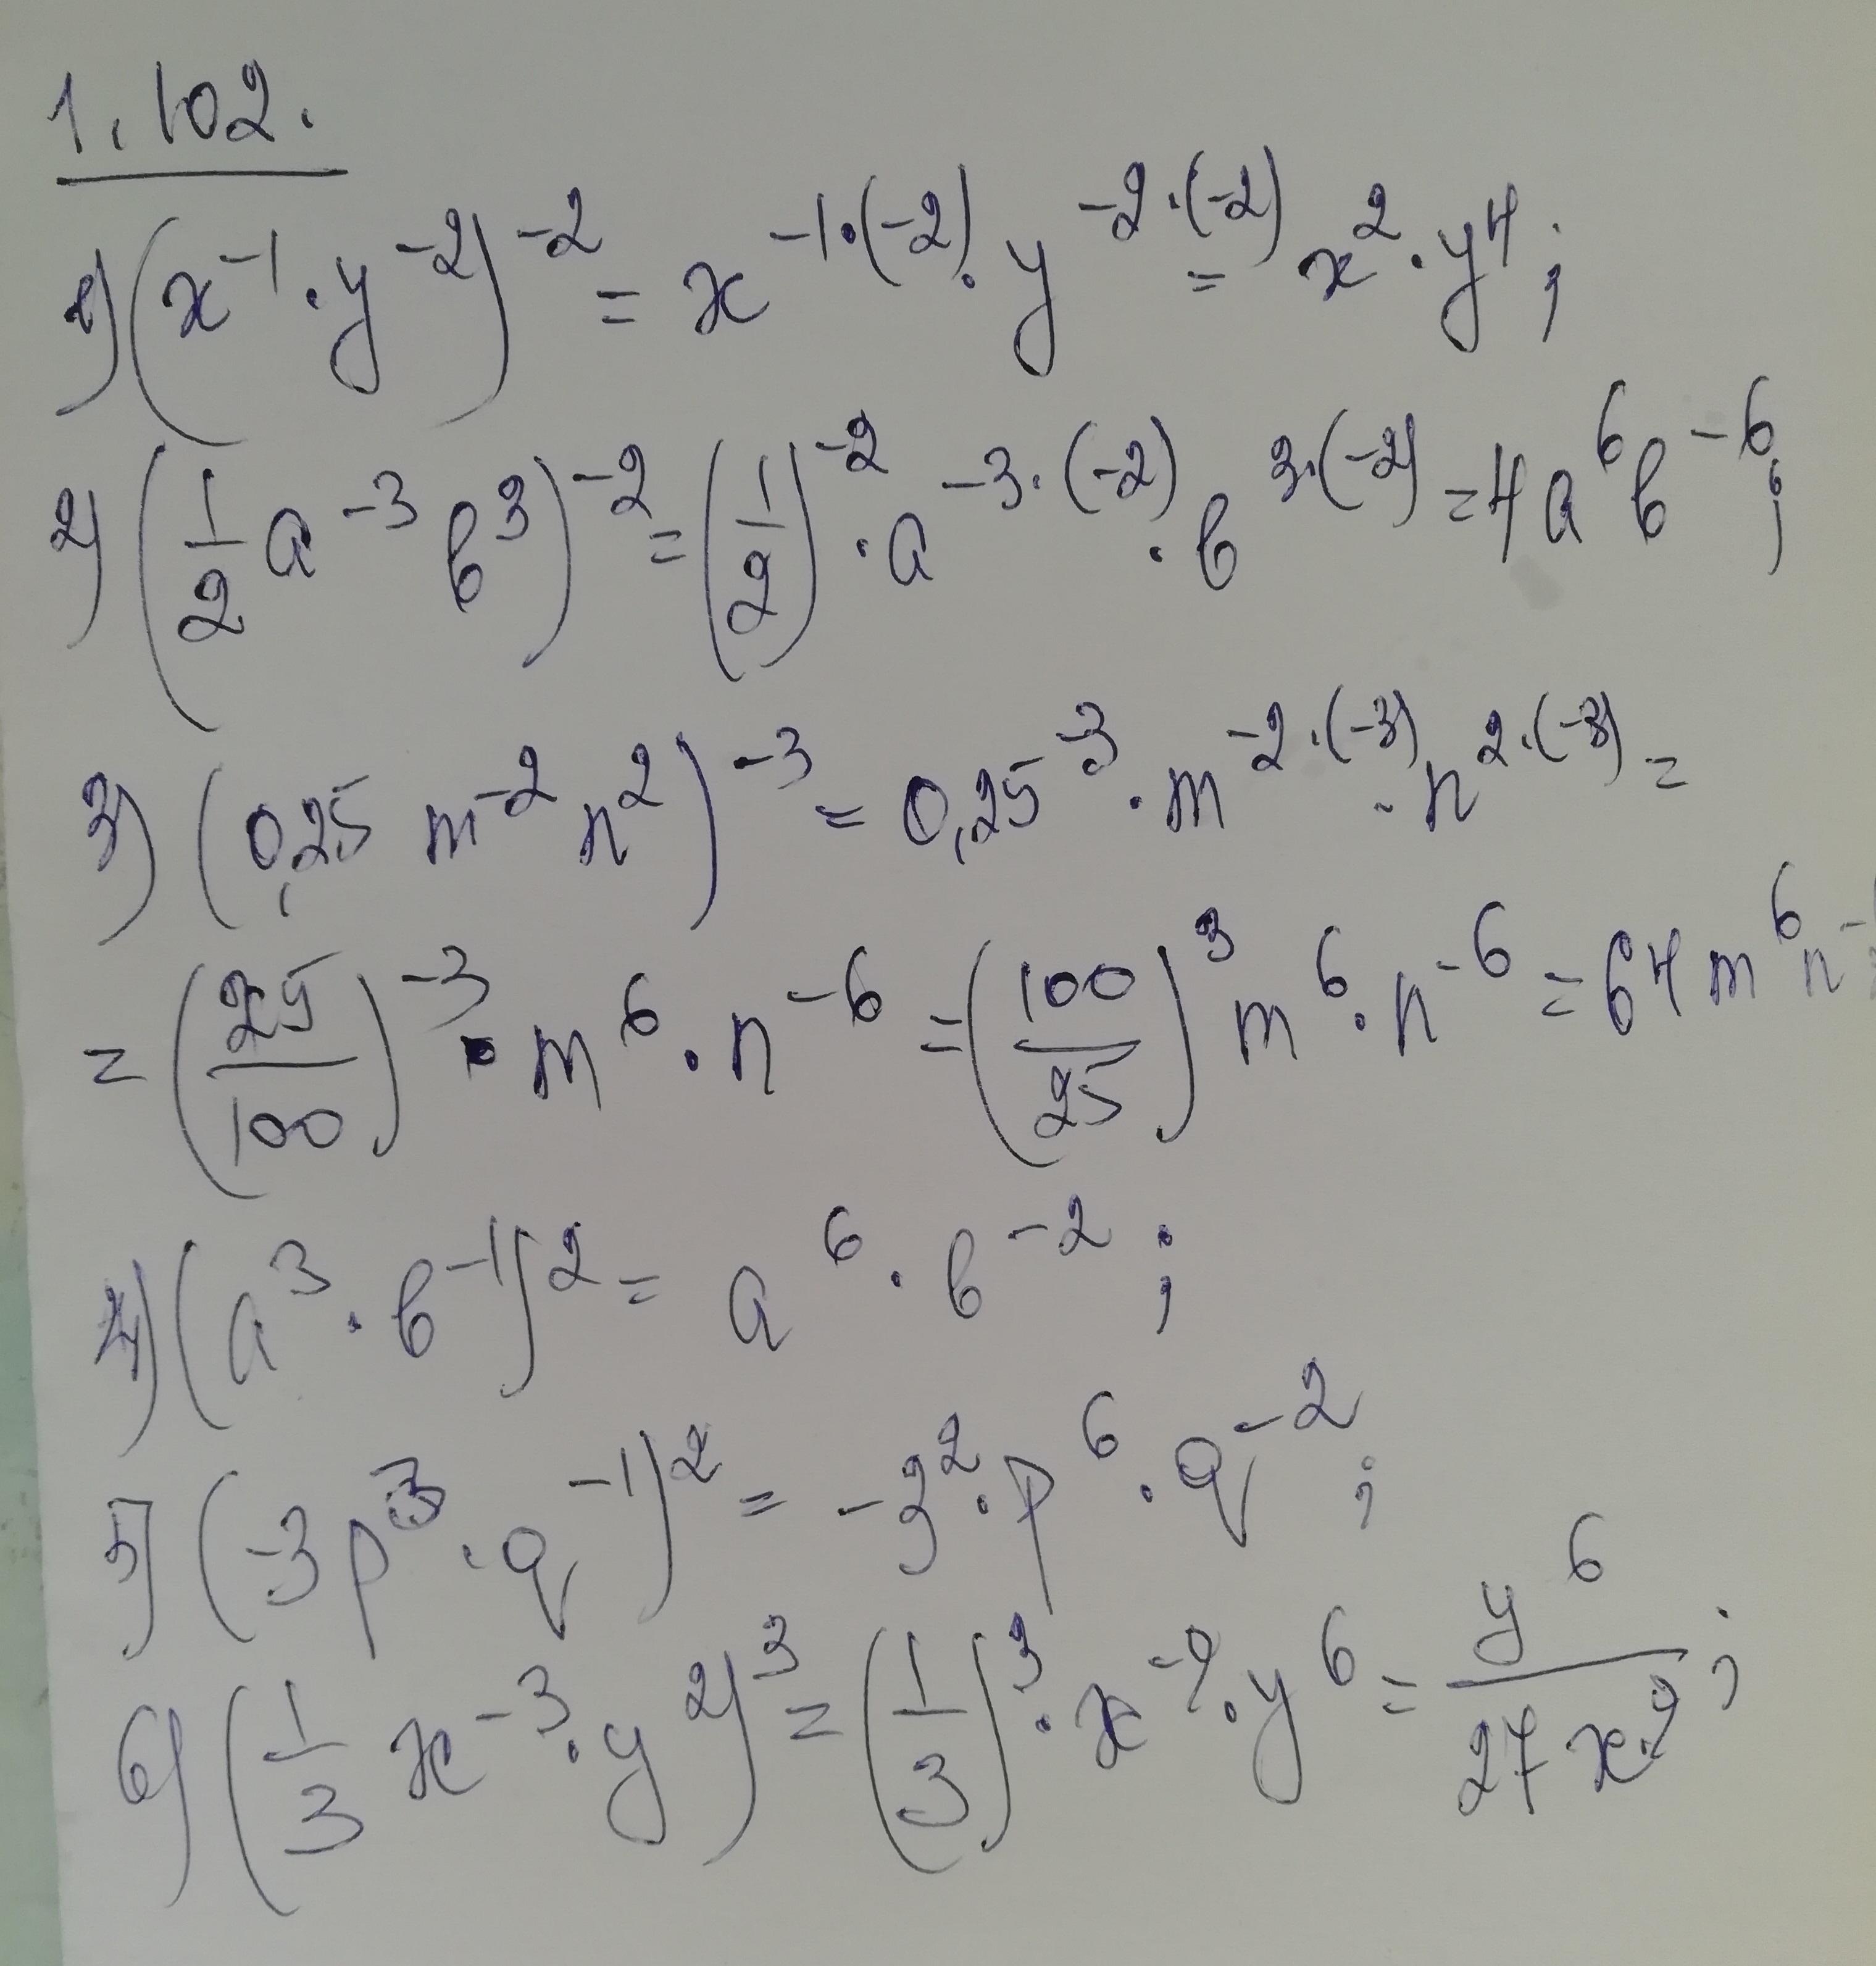 1.102.
1) (x^-1 · y^-2)^-2 = x^-1·(-2) · y^-2·(-2) = x^2 · y^4;
2) (1/2 a^-3 b^3)^-2 = (1/2)^-2 · a^-3·(-2) · b^3·(-2) = 4a^6 b^-6;
3) (0,25 m^-2 n^2)^-3 = 0,25^-3 · m^-2·(-3) · n^2·(-3) =
= (25/100)^-3 · m^6 · n^-6 = (100/25)^3 m^6 · n^-6 = 64 m^6 n^-
4) (a^3 · b^-1)^2 = a^6 · b^-2;
5) (-3p^3 · q^-1)^2 = -3^2 · p^6 · q^-2;
6) (1/3 x^-3 · y^2)^3 = (1/3)^3 · x^-9 · y^6 = y^6/27x^9;